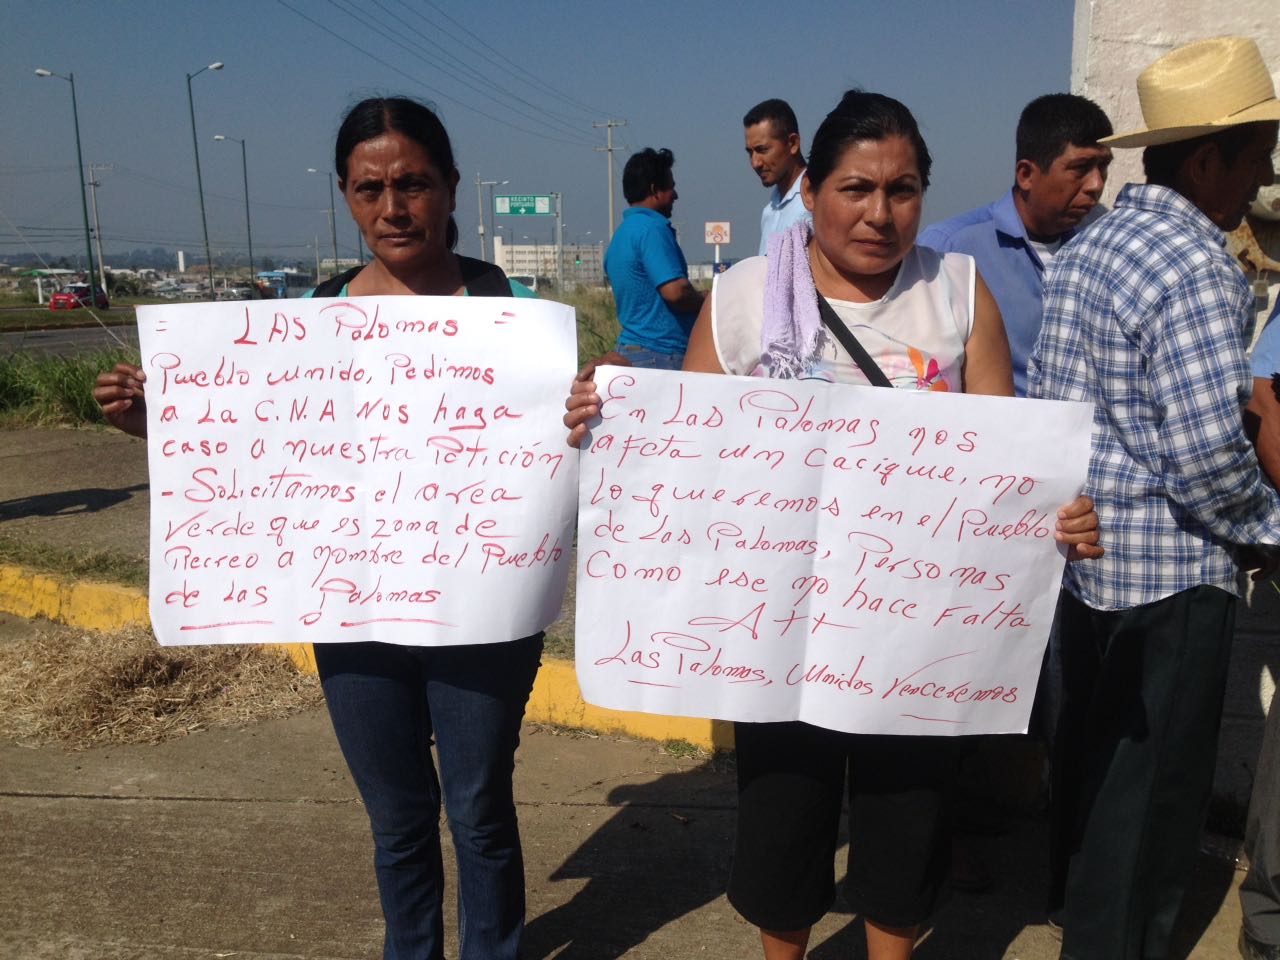 = LAS Palomas =
Pueblo unido, Pedimos
a La C.N.A Nos haga
caso a nuestra Petición
- Solicitamos el area
verde que es zona de
Recreo a Nombre del Pueblo
de Las Palomas
En Las Palomas nos
afeta un Cacique, no
Lo queremos en el Pueblo
de Las Palomas, Personas
Como ese no hace Falta
Att
Las Palomas, Unidos Venceremos
RECINTO
PORTUARIO